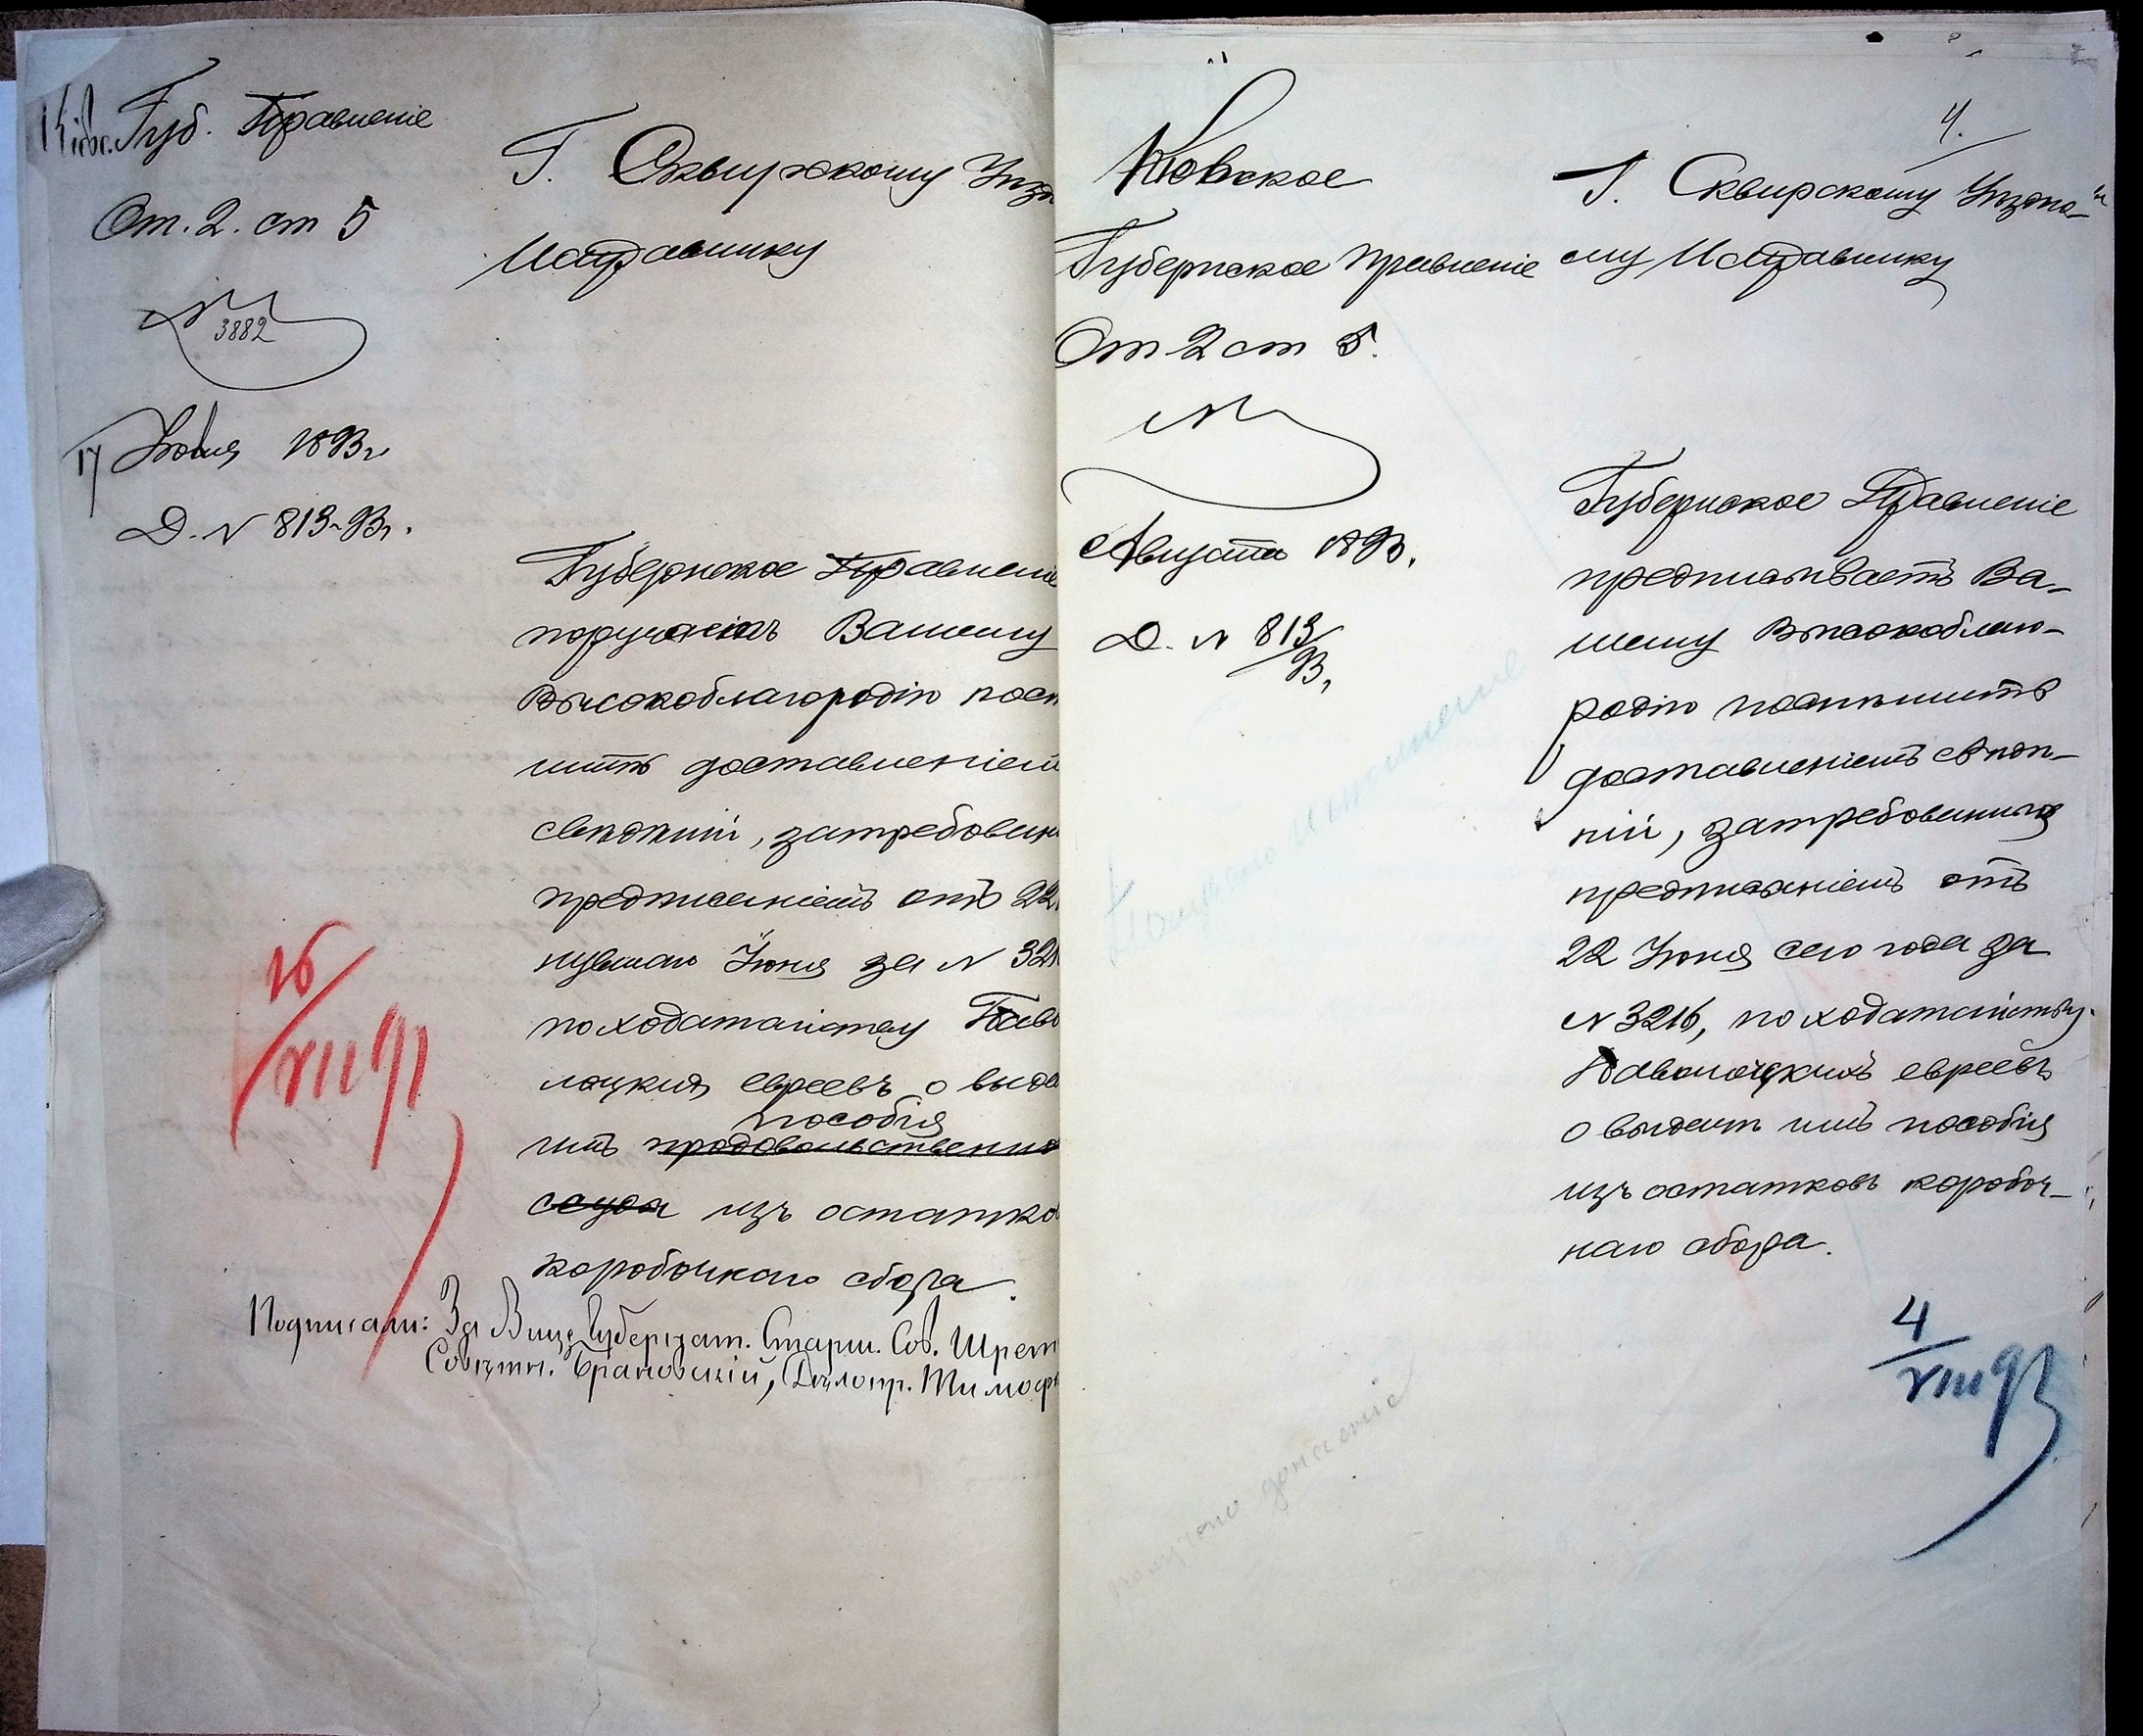 Кіев. Губ. Правленіе
От. 2. ст 5
N
3882
17 Іюля 1893 г.
Д. N 813-93 г.
Г. Сквирскому Уѣзд
Исправнику
Губернское Правленіе
поручаетъ Вашему
Высокоблагородію поспѣ
шить доставленіемъ
свѣдѣній, затребован
предписаніемъ отъ 22
нувшаго Іюня за N 321
по ходатайству Паво
лоцкихъ евреевъ о выда
пособія
имъ продовольственно
ссуды изъ остатко
коробочнаго сбора.
Подписали: За Вице Губернат. Старш. Сов. Шрет
Совѣтн. Брановскій, Дѣлопр. Тимоф
16
VIII 93
4.
Кіевское
Губернское Правленіе
От 2 ст 5.
N
Августа 1893.
Д. N 813/93,
Г. Сквирскому Уѣздно-
му Исправнику
Губернское Правленіе
предписываетъ Ва-
шему Высокоблаго-
родію поспѣшить
доставленіемъ свѣдѣ-
ній, затребованныхъ
предписаніемъ отъ
22 Іюня сего года за
N 3216, по ходатайству
Паволочскихъ евреевъ
о выдачѣ имъ пособія
изъ остатковъ коробоч-
наго сбора.
4
VIII 93
получено донесеніе